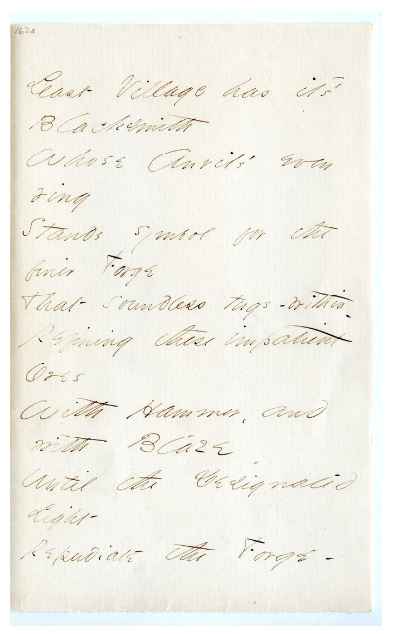 162a
Least Village has it's
Blacksmith
Whose Anvil's even
ring
Stands symbol for the
finer Forge
That soundless tugs - within -
Refining these impatient
Ores
With Hammer, and
with Blaze
Until the Designated
Light
Repudiate the Forge -